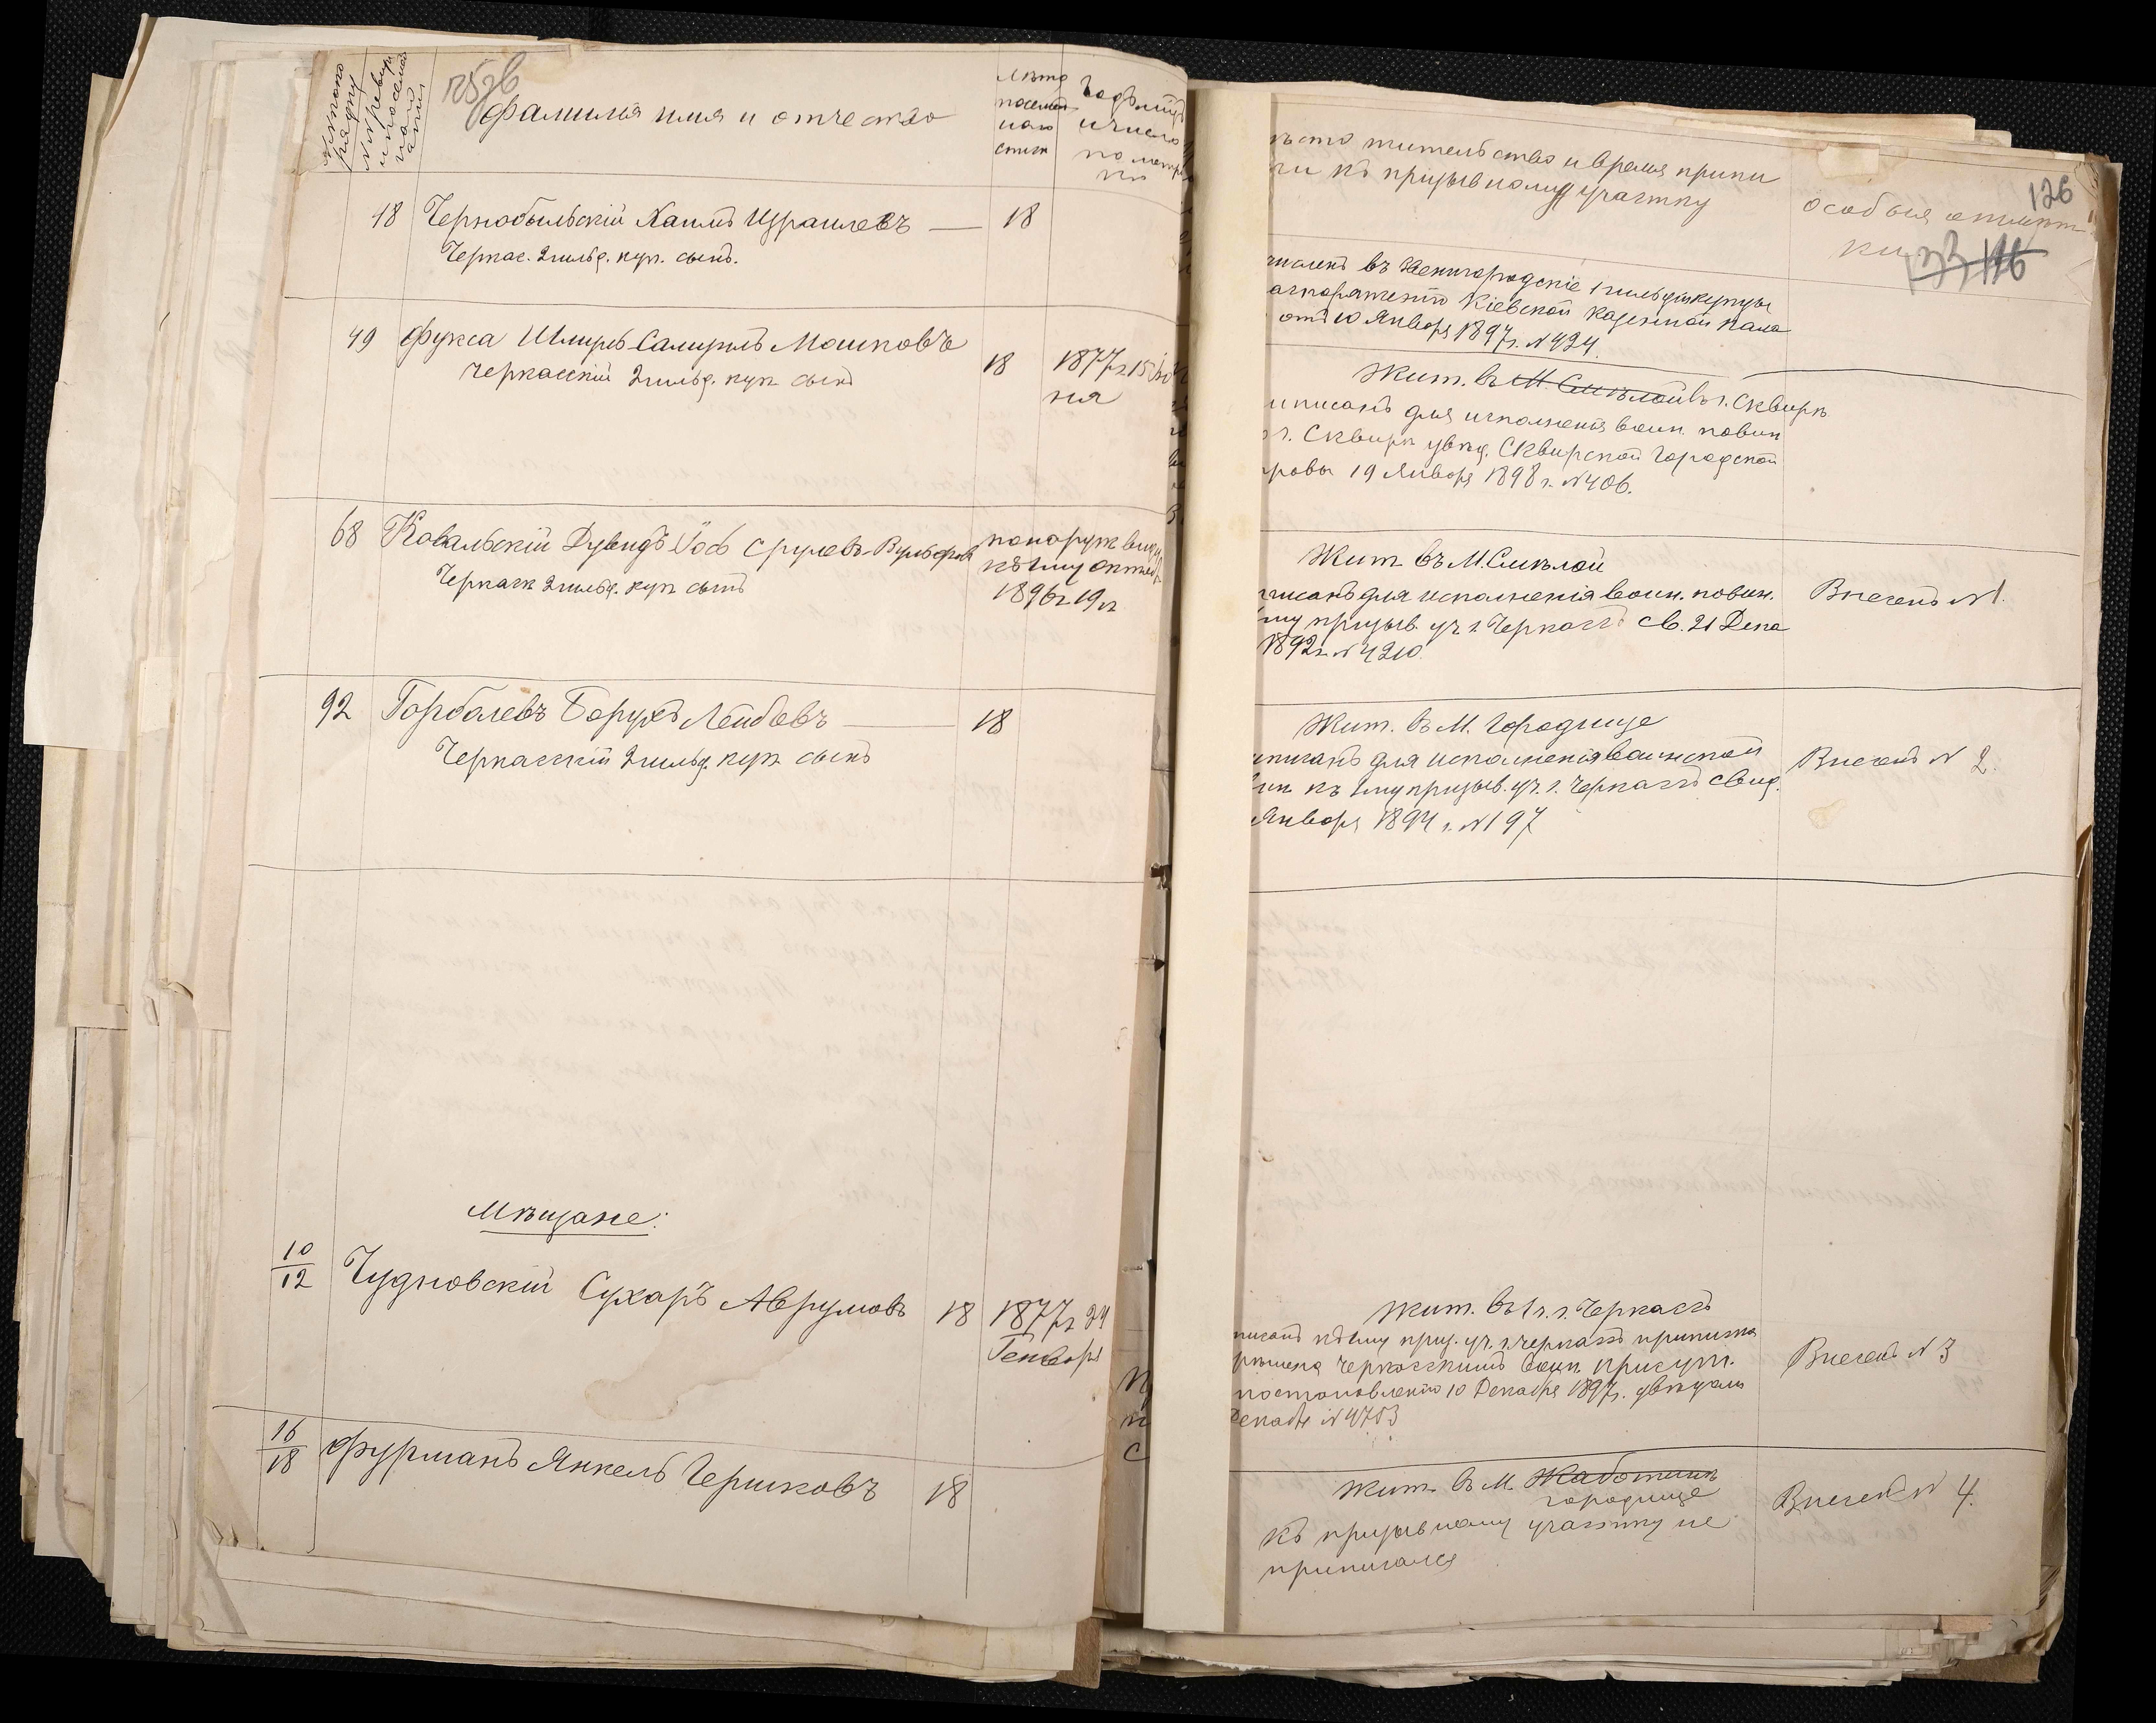 фамилія имя и отчество
Лѣта
по семей
ному
списк
Годъ мѣс
и число
по метри
ки
18 Чернобыльскій Хаимъ Израилевъ — 18
Черкас. 2 гильд. куп. сынъ.
49 Фукса Шмиръ Самуилъ Мошковъ 18 1877 г. 15 Ію
ня
Черкасскій 2 гильд. куп. сынъ
68 Ковальскій Дувидъ Іось Срулевъ-Вульфовъ
Черкасск 2 гильд. куп. сынъ
по наруж виду
къ 1му октяб
1896 г. 19 л
92 Горбалевъ Борухъ Лейбовъ — 18
Черкасскій 2 гильд. куп. сынъ
Мѣщане:
10/12 Чудновскій Сухаръ Аврумовъ 18 1877 г. 24
Генваря
16/18 Фурманъ Янкель Гершковъ 18
ѣсто жительство и время припи
ки къ призывному участку
Особыя отмѣт
ки
126
численъ въ Звенигородскіе 1 гильдіи купцы
аспоряженію Кіевской Казенной Пала
отъ 10 Января 1897 г. № 424.
Жит. въ М. Смѣлой въ г. Сквирѣ
иписанъ для исполненія воин. повин
г. Сквирѣ увѣд. Сквирской Городской
правы 19 Января 1898 г. № 406.
Жит въ М. Смѣлой
писанъ для исполненія воин. повин.
му призыв. уч. г. Черкассъ св. 21 Дека
1892 г. № 4210.
Внесенъ № 1.
Жит. въ М. Городище
иписанъ для исполненія воинской
ин къ 1му призыв. уч. г. Черкассъ свид.
Января 1894 г. № 197
Внесенъ № 2.
Жит. въ г. Черкассъ
писанъ къ 1му приз. уч. г. Черкассъ приписка
рѣшена Черкасскимъ Воин. присут.
постановленію 10 Декабря 1897 г.
Декабря № 4753
Внесенъ № 3
Жит. въ М. Жаботинѣ
городище
къ призывному участку не
приписался
Внесенъ № 4.